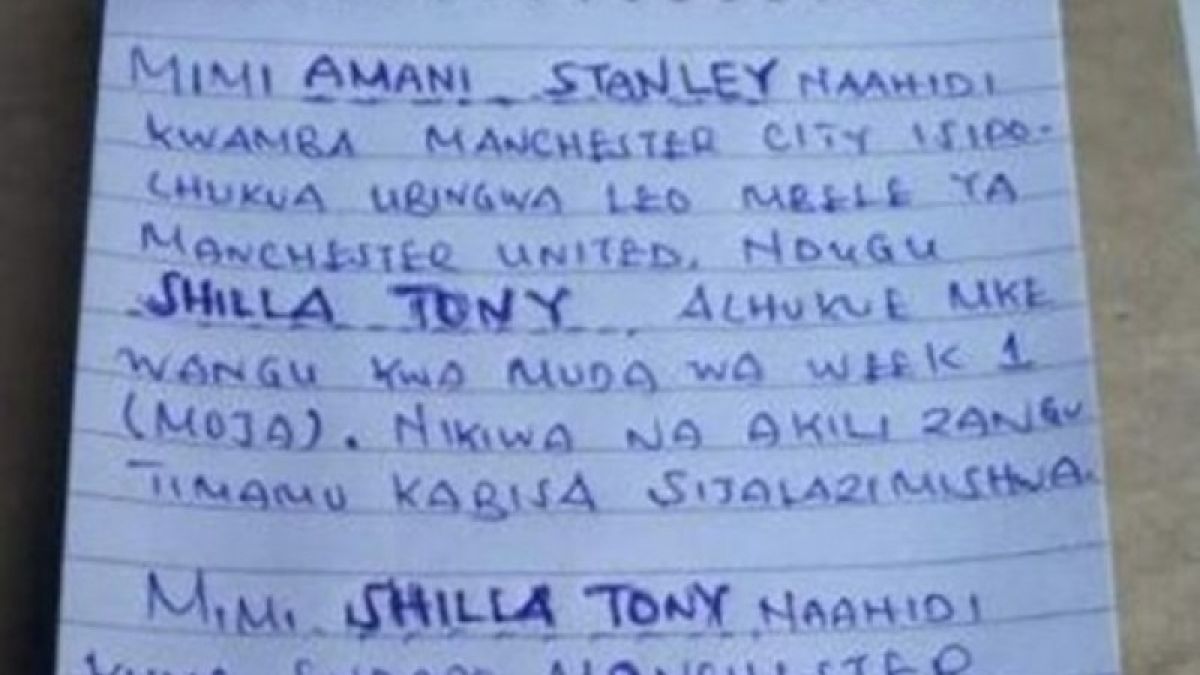 MIMI AMANI STANLEY NAAHIDI
KWAMBA MANCHESTER CITY ISIPO-
CHUKUA UBINGWA LEO MBELE YA
MANCHESTER UNITED, NDUGU
SHILLA TONY ACHUKUE MKE
WANGU KWA MUDA WA WEEK 1
(MOJA). NIKIWA NA AKILI ZANGU
TIMAMU KABISA SIJALAZIMISHWA.
MIMI SHILLA TONY NAAHIDI
MANCHESTER